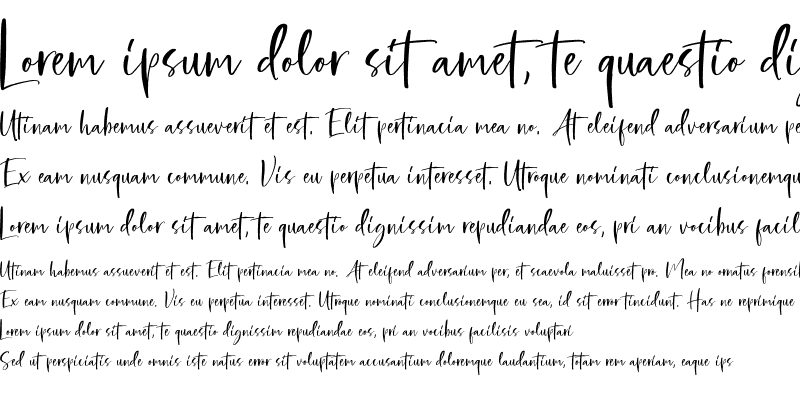 Lorem ipsum dolor sit amet, te quaestio di
Utinam habemus assueverit et est. Elit pertinacia mea no. At eleifend adversarium pe
Ex eam nusquam commune. Vis eu perpetua interesset. Utroque nominati conclusionemqu
Lorem ipsum dolor sit amet, te quaestio dignissim repudiandae eos, pri an vocibus facil
Utinam habemus assueverit et est. Elit pertinacia mea no. At eleifend adversarium per, et scaevola maluisset pro. Mea no ornatus forensib
Ex eam nusquam commune. Vis eu perpetua interesset. Utroque nominati conclusionemque eu sea, id sit error tincidunt. Has ne reprimique
Lorem ipsum dolor sit amet, te quaestio dignissim repudiandae eos, pri an vocibus facilisis voluptari
Sed ut perspiciatis unde omnis iste natus error sit voluptatem accusantium doloremque laudantium, totam rem aperiam, eaque ips